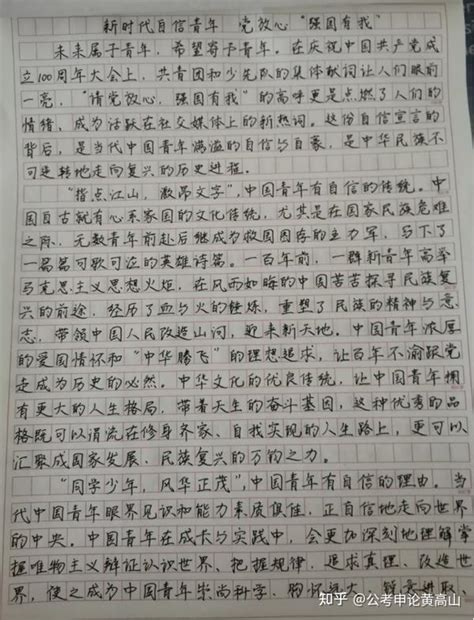 新时代自信青年 党放心“强国有我”
未来属于青年,希望寄予青年。在庆祝中国共产党成
立100周年大会上,共青团和少先队的集体献词让人们眼前
一亮,“请党放心,强国有我”的高呼更是点燃了人们的
情绪、成为活跃在社交媒体上的新热词。这份自信宣言的
背后,是当代中国青年满溢的自信与自豪,是中华民族不
可逆转地走向复兴的历史进程。
“指点江山,激昂文字”,中国青年有自信的传统。中
国自古就有心系家国的文化传统,尤其是在国家民族危难
之际,无数青年前赴后继成为救国图存的主力军,写下了
一篇篇可歌可泣的英雄诗篇。一百年前,一群新青年高举
马克思主义思想火炬,在风雨如晦的中国苦苦探寻民族复
兴的前途,经历了血与火的锤炼,重塑了民族的精神与意
志,带领中国人民改造山河,迎来新天地。中国青年浓厚
的爱国情怀和“中华腾飞”的理想追求,让百年不渝跟党
走成为历史的必然。中华文化的优良传统,让中国青年拥
有更大的人生格局,带着天生的奋斗基因,这种优秀的品
格既可以清流在修身齐家、自我实现的人生路上,更可以
汇聚成国家发展、民族复兴的万钧之力。
“同学少年,风华正茂”,中国青年有自信的理由。当
代中国青年眼界见识和能力素质俱佳,正自信地走向世界
的中央。中国青年在成长与实践中,会更加深刻地理解掌
握唯物主义辩证认识世界、把握规律、追求真理、改造世
界,使之成为中国青年崇尚科学、胸怀远大、锐意进取、
知乎 @公考申论黄高山